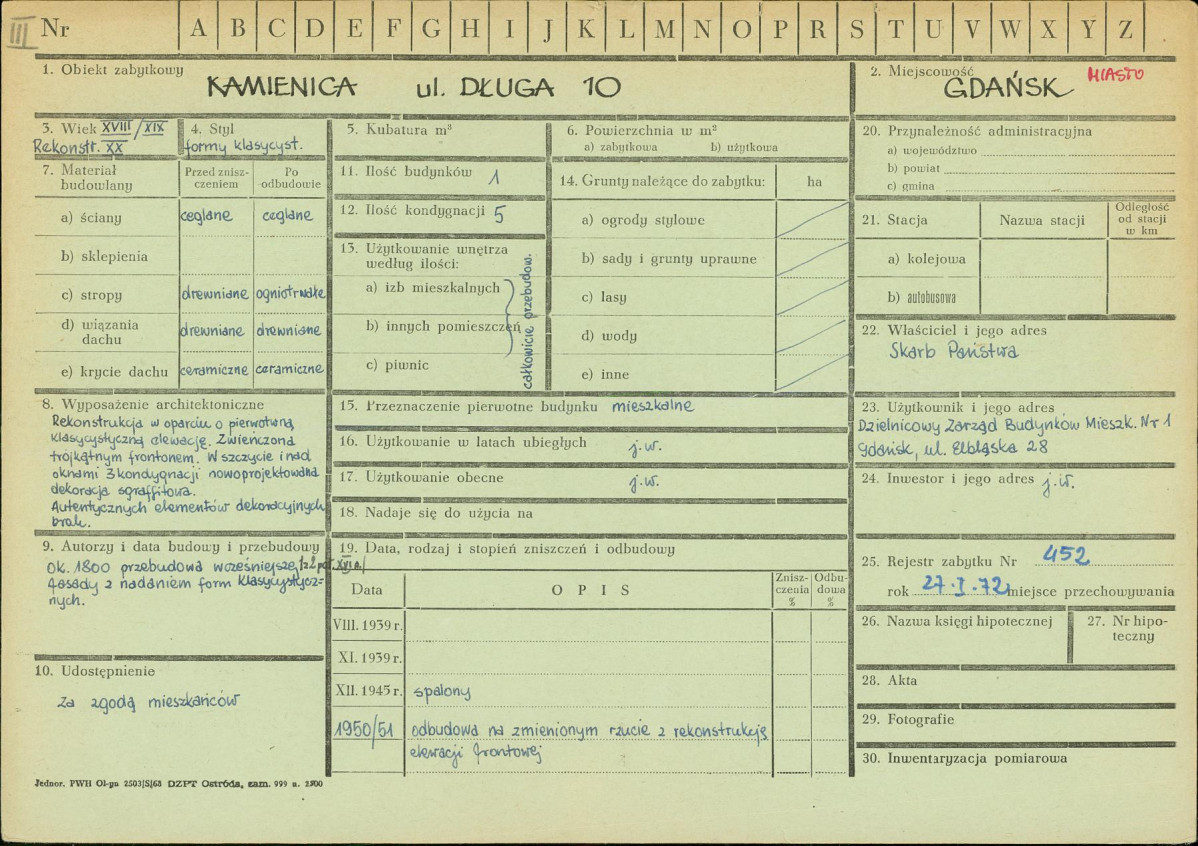 III
Nr A B C D E F G H I J K L M N O P R S T U V W X Y Z
1. Obiekt zabytkowy
KAMIENICA ul. DŁUGA 10
2. Miejscowość
GDAŃSK
MIASTO
3. Wiek XVIII/XIX
Rekonstr. XX
4. Styl
formy klasycyst.
5. Kubatura m³
6. Powierzchnia w m²
a) zabytkowa b) użytkowa
7. Materiał budowlany
Przed zniszczeniem
Po odbudowie
a) ściany ceglane ceglane
b) sklepienia
c) stropy drewniane ogniotrwałe
d) wiązania dachu drewniane drewniane
e) krycie dachu ceramiczne ceramiczne
8. Wyposażenie architektoniczne
Rekonstrukcja w oparciu o pierwotną,
klasycystyczną elewację. Zwieńczona
trójkątnym frontonem. W szczycie i nad
oknami 3 kondygnacji nowoprojektowana
dekoracja sgraffitowa.
Autentycznych elementów dekoracyjnych
brak.
9. Autorzy i data budowy i przebudowy
ok. 1800 przebudowa wcześniejszej /z 2 poł. XVI w./
fasady z nadaniem form klasycystycz=
nych.
10. Udostępnienie
Za zgodą mieszkańców
11. Ilość budynków 1
12. Ilość kondygnacji 5
13. Użytkowanie wnętrza
według ilości:
a) izb mieszkalnych
b) innych pomieszczeń
c) piwnic
całkowicie przebudow.
14. Grunty należące do zabytku: ha
a) ogrody stylowe
b) sady i grunty uprawne
c) lasy
d) wody
e) inne
15. Przeznaczenie pierwotne budynku mieszkalne
16. Użytkowanie w latach ubiegłych j.w.
17. Użytkowanie obecne j.w.
18. Nadaje się do użycia na
19. Data, rodzaj i stopień zniszczeń i odbudowy
Data OPIS Zniszczenia % Odbudowa %
VIII. 1939 r.
XI. 1939 r.
XII. 1945 r. spalony
1950/51 odbudowa na zmienionym rzucie z rekonstrukcją
elewacji frontowej
20. Przynależność administracyjna
a) województwo
b) powiat
c) gmina
21. Stacja Nazwa stacji Odległość od stacji w km
a) kolejowa
b) autobusowa
22. Właściciel i jego adres
Skarb Państwa
23. Użytkownik i jego adres
Dzielnicowy Zarząd Budynków Mieszk. Nr 1
Gdańsk, ul. Elbląska 28
24. Inwestor i jego adres j.w.
25. Rejestr zabytku Nr 452
rok 27.I.72 miejsce przechowywania
26. Nazwa księgi hipotecznej
27. Nr hipoteczny
28. Akta
29. Fotografie
30. Inwentaryzacja pomiarowa
Jednor. PWH Ol-yn 2503/S/68 DZPT Ostróda, zam. 999 n. 2500